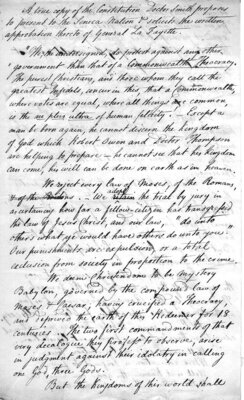 A true copy of the Constitution Doctor Smith proposes
to present to the Seneca Nation & solicits the written
approbation thereto of General La Fayette.
We the undersigned, do protest against any other
government than that of a Commonwealth Theocracy.
The purest Christians, and those whom they call the
greatest Infidels, concur in this, that a Commonwealth,
where votes are equal, where all things are common,
is the ne plus ultra of human felicity. — Except a
man be born again, he cannot discern the kingdom
of God which Robert Owen and Doctor Thompson
are helping to prepare — he cannot see that his kingdom
can come, his will can be done on earth as in heaven.
We reject every law of Moses, of the Romans,
& of the . We the trial by jury in
ascertaining how far a fellow-citizen has transgressed
the law of Jesus Christ and our law, "do unto
others what ye would have others do unto you."
Our punishments are expulsion, or a total
seclusion from society in proportion to the crime.
We deem Christendom to be Mystery
Babylon, governed by the compound law of
Moses & Caesar, having crucified a Theocracy,
and deprived the earth of their Redeemer for 18
centuries. The two first commandments of that
very decalogue they profess to observe, arise
in judgment against their idolatry in calling
one God, three Gods.
But the kingdoms of this world shall